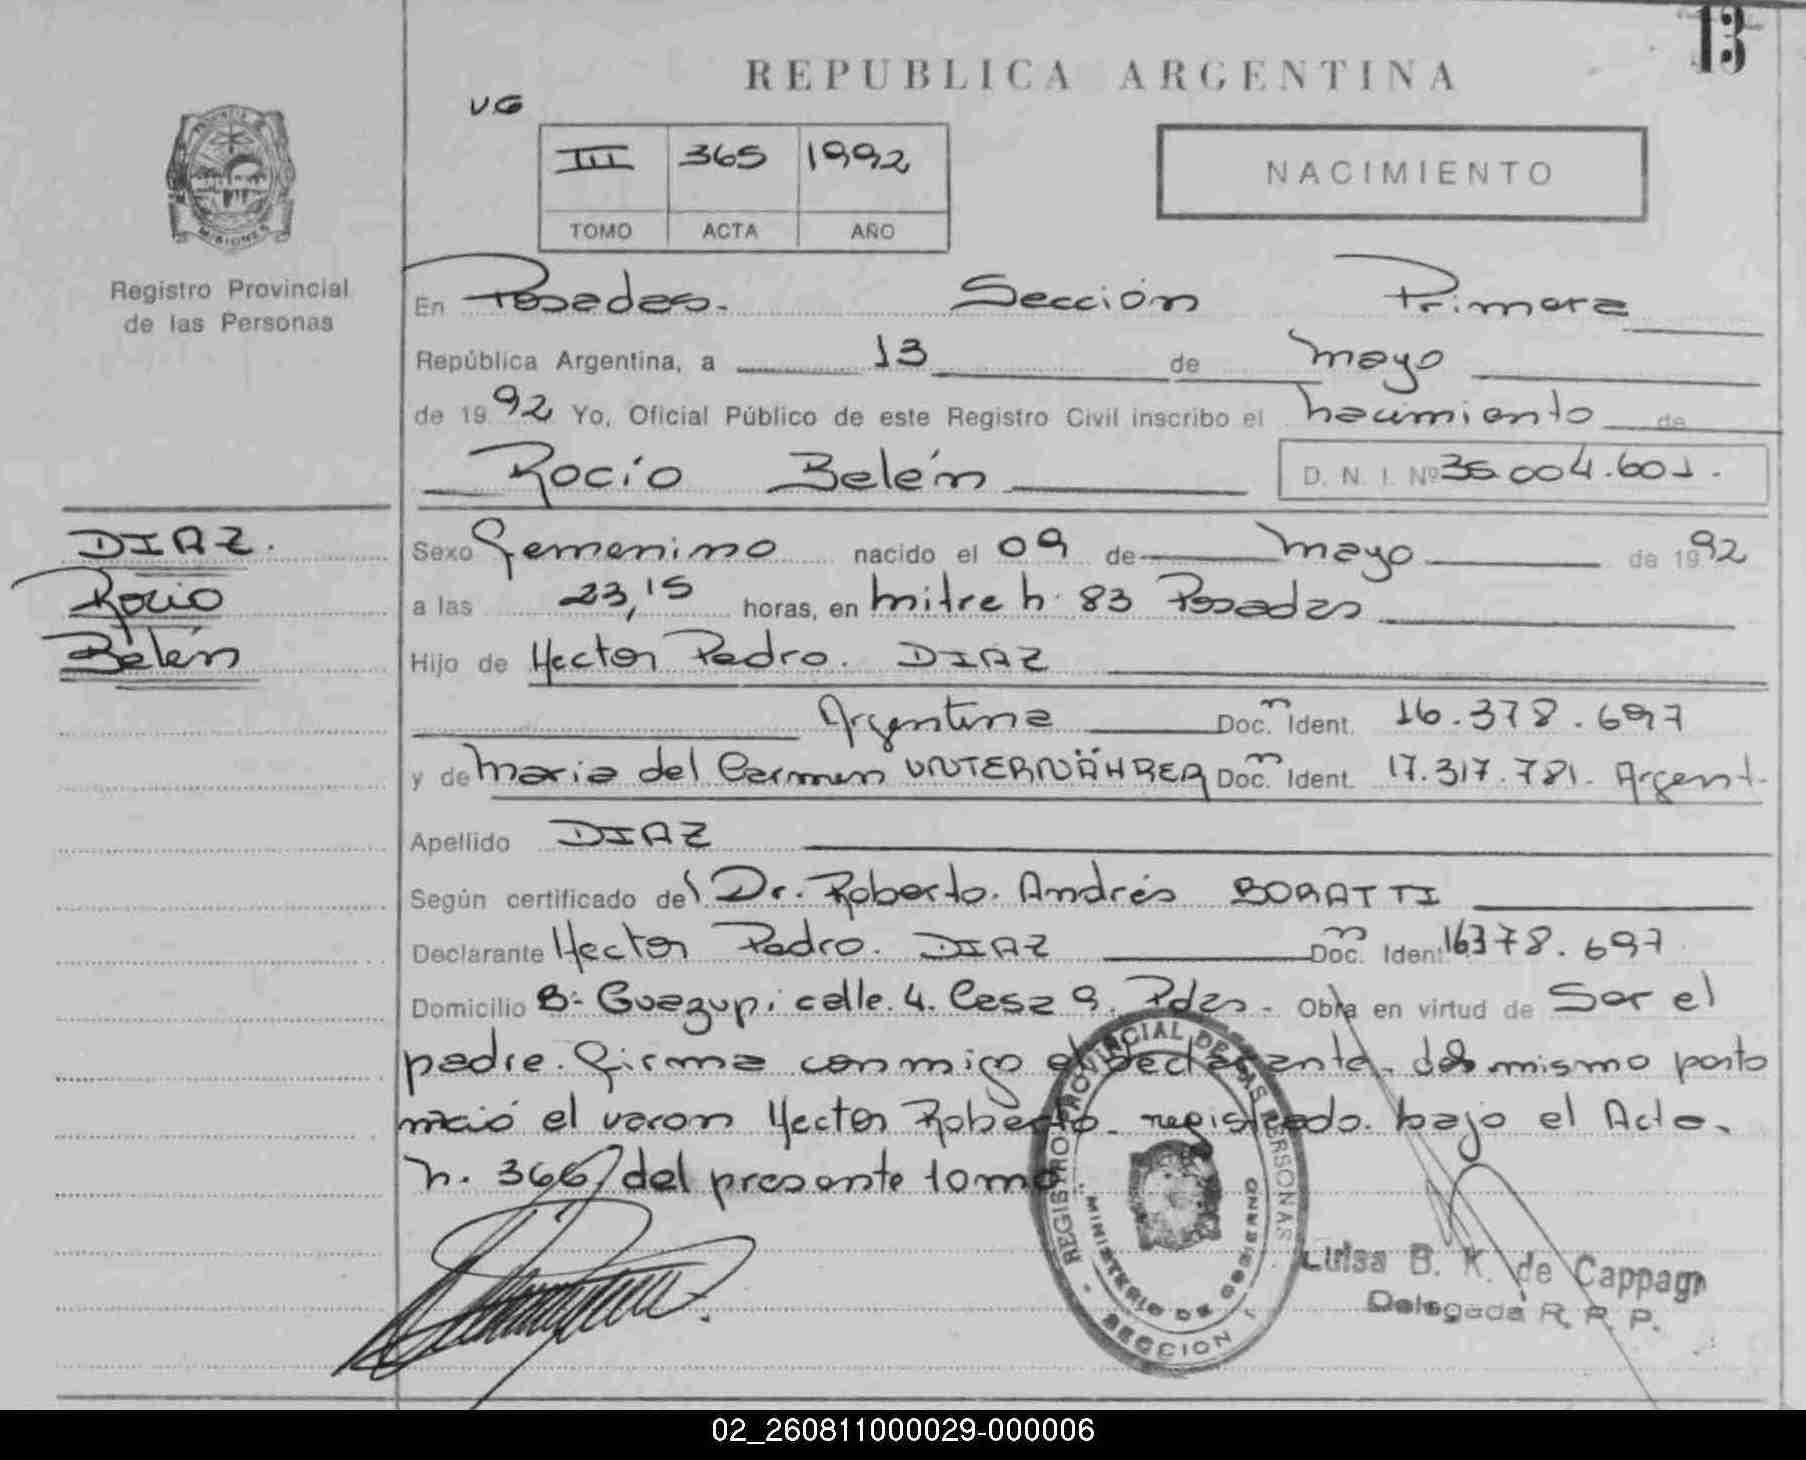 13
REPUBLICA ARGENTINA
V.G
III 365 1992
TOMO ACTA AÑO
NACIMIENTO
PROVINCIA DE MISIONES
Registro Provincial
de las Personas
En Posadas. Sección Primera
República Argentina, a 13 de mayo
de 1992 Yo, Oficial Público de este Registro Civil inscribo el nacimiento de
Rocío Belén D. N. I. Nº 36.004.601.
DIAZ.
Rocio
Belén
Sexo Femenino nacido el 09 de mayo de 1992
a las 23,15 horas, en mitre n. 83 Posadas
Hijo de Hector Pedro. DIAZ
Argentina Doc. Ident. 16.378.697
y de Maria del Carmen UNTERNÄHRER Doc. Ident. 17.317.781. Argent.
Apellido DIAZ
Según certificado del Dr. Roberto. Andrés BORATTI
Declarante Hector Pedro. DIAZ Doc. Ident 16378.697
Domicilio B: Guazupi calle. 4. Casa 9. Pdas. Obra en virtud de Ser el
padre. Firma conmigo el declarante. del mismo parto
nació el varon Hector Roberto. registrado. bajo el Acta.
n. 366 del presente tomo
REGISTRO PROVINCIAL DE LAS PERSONAS
MINISTERIO DE GOBIERNO
SECCION 1
Luisa B. K. de Cappagr
Delegada R. P. P.
02_260811000029-000006